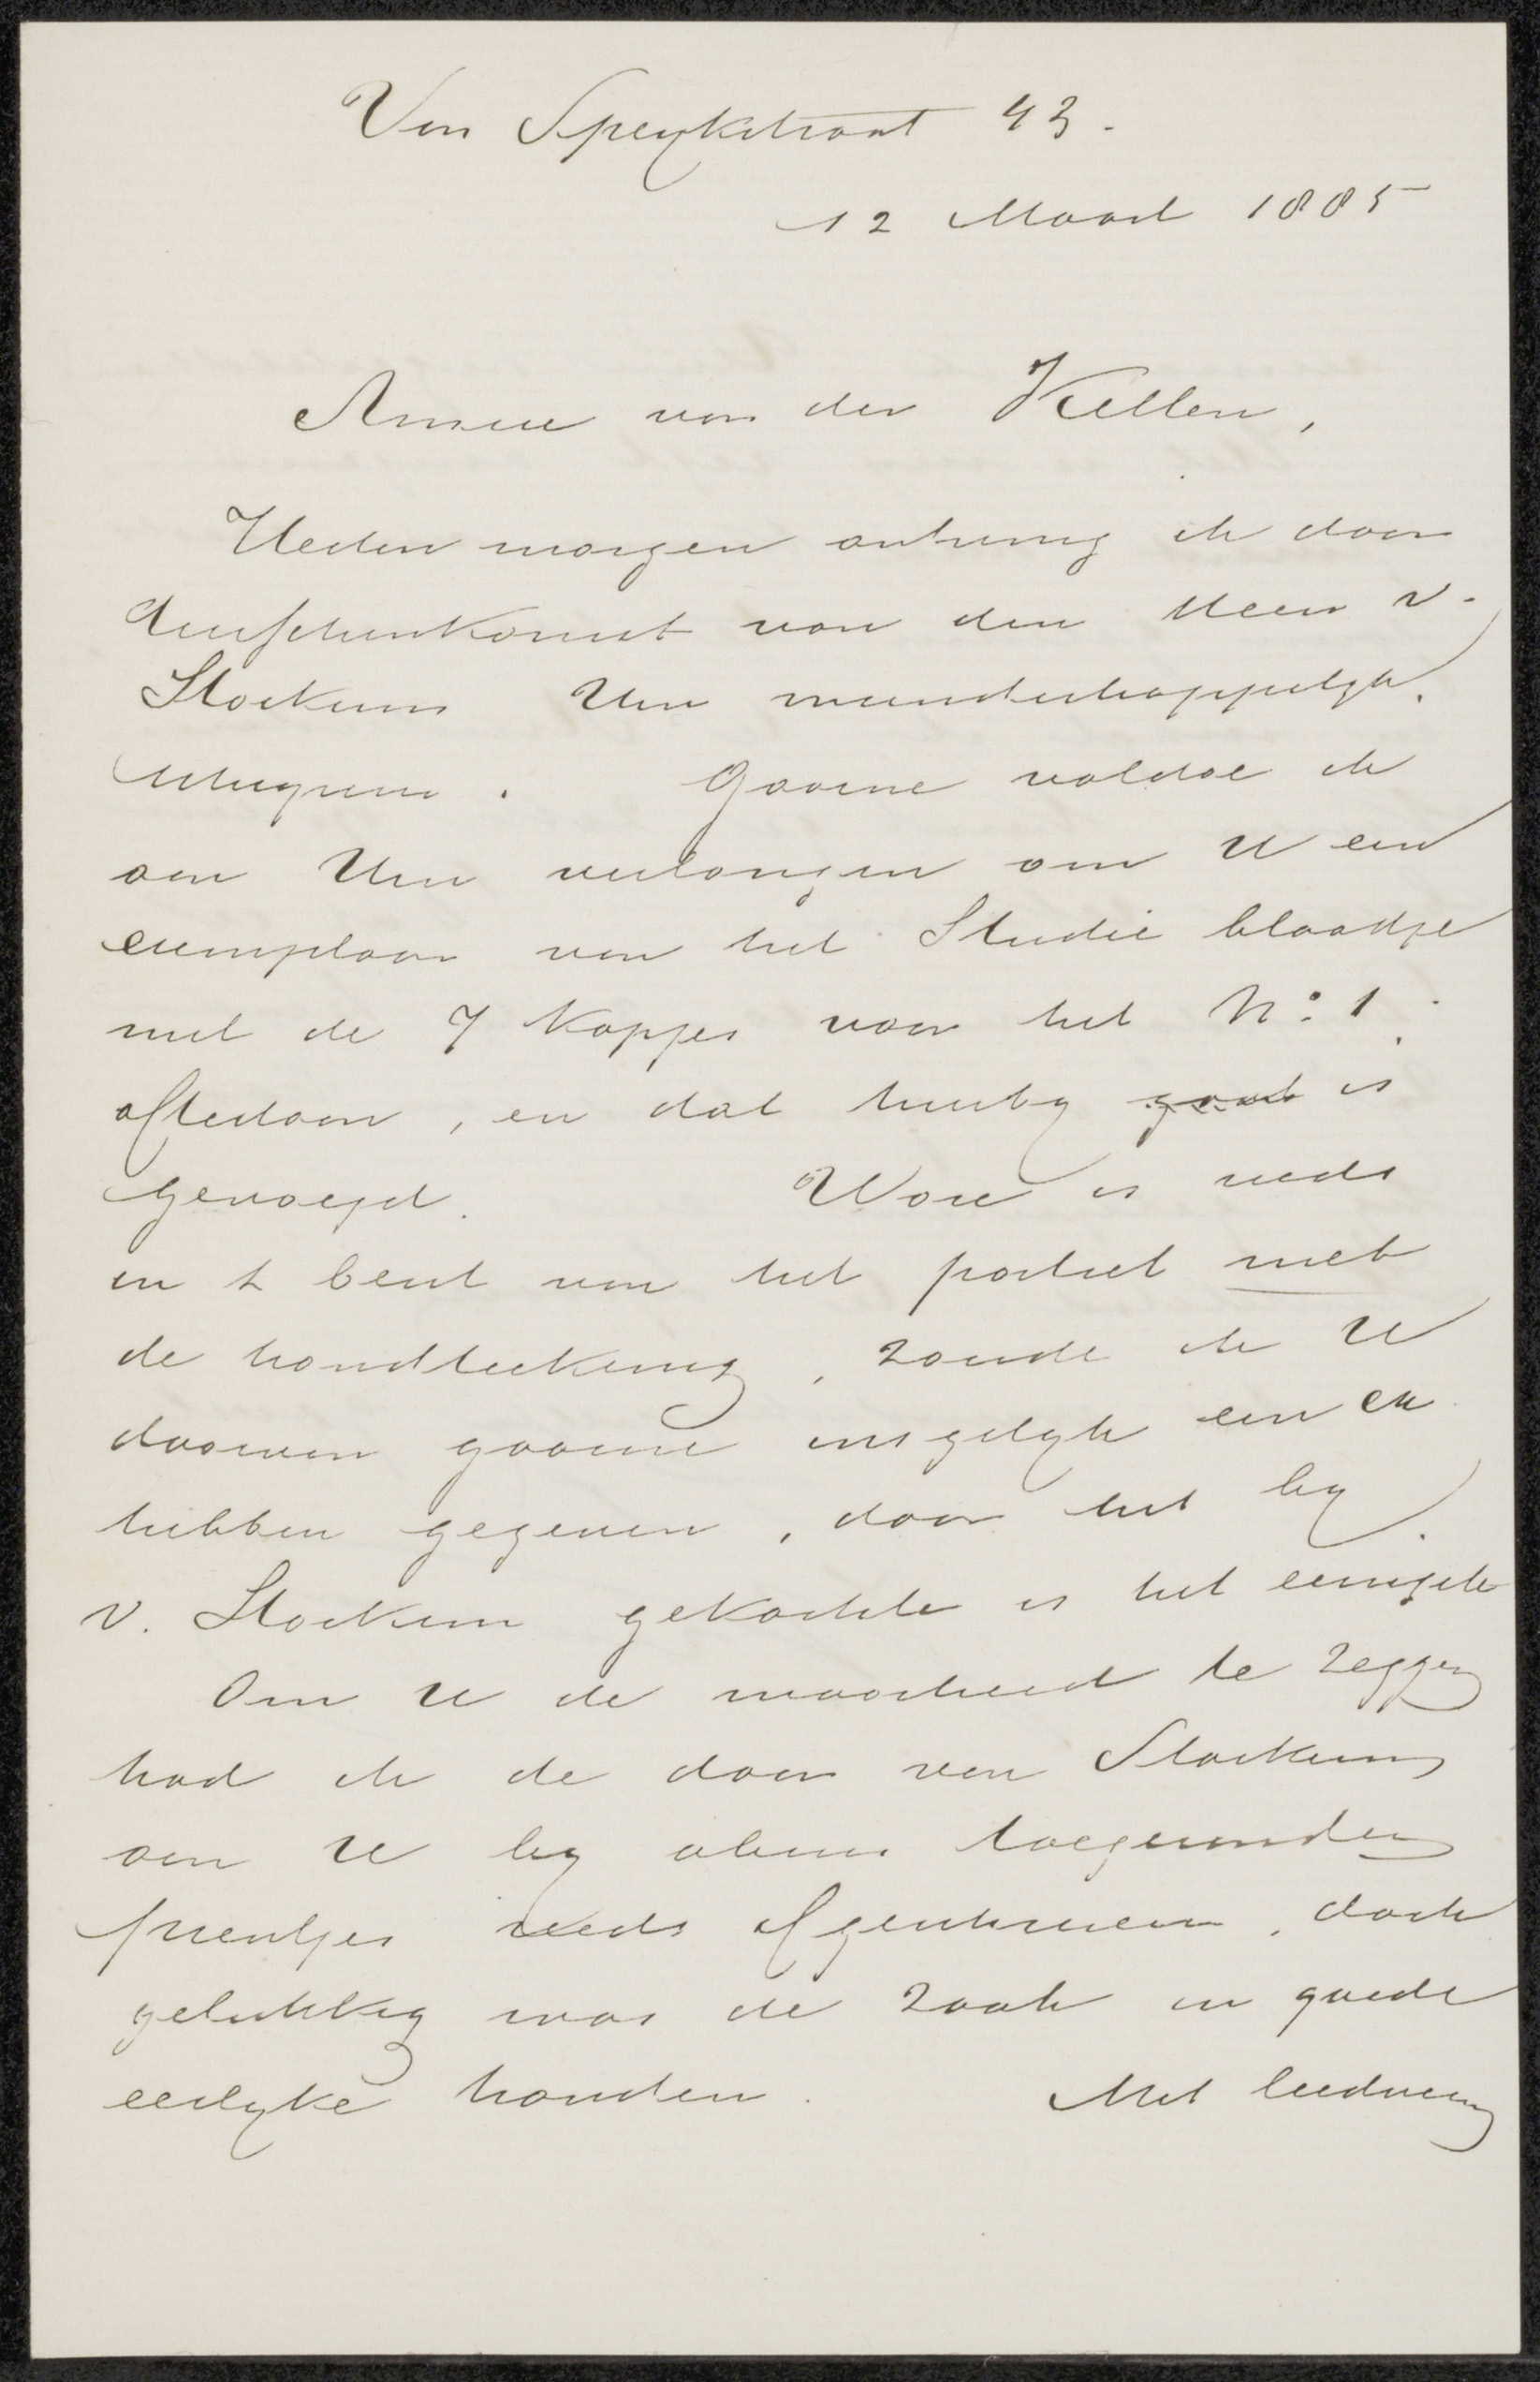 Van Speykstraat 43.
12 Maart 1885
Amice van der Kellen,
Heden morgen ontving ik door
tusschenkomst van den Heer v.
Stockum Uw vriendschappelijk
schrijven. Gaarne voldoe ik
aan Uw verlangen om U een
exemplaar van het Studie blaadje
met de 7 Kopjes voor het No. 1.
aftestaan, en dat hierby gaat is
gevoegd. Ware is reeds
in 't bezit van het portret met
de handteekening, zoude ik U
daarvan gaarne insgelyk een ex
hebben gegeven, daar het by
v. Stockum gekochte is het eenigste
Om U de waarheid te zeggen
had ik de door van Stockum
aan U by abuis toegezonden
prentjes reeds afgeschreven, doch
gelukkig was de zaak in goede
eerlyke handen. Met leedwezen